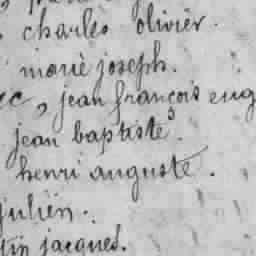 charles olivier.
marie joseph.
ec, jean françois eug
jean baptiste
henri auguste.
julien.
tin jacques.